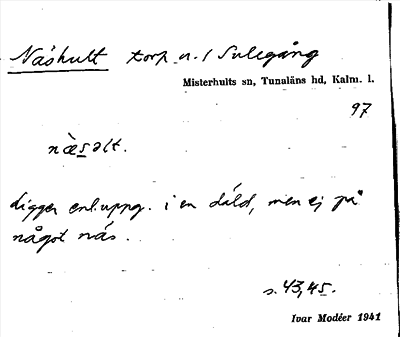 Näshult torp u. / Sulegång
Misterhults sn, Tunaläns hd, Kalm. l.
97
næ̀səlt.
ligger enl. uppg. i en däld, men ej på
något näs.
s. 43, 45.
Ivar Modéer 1941